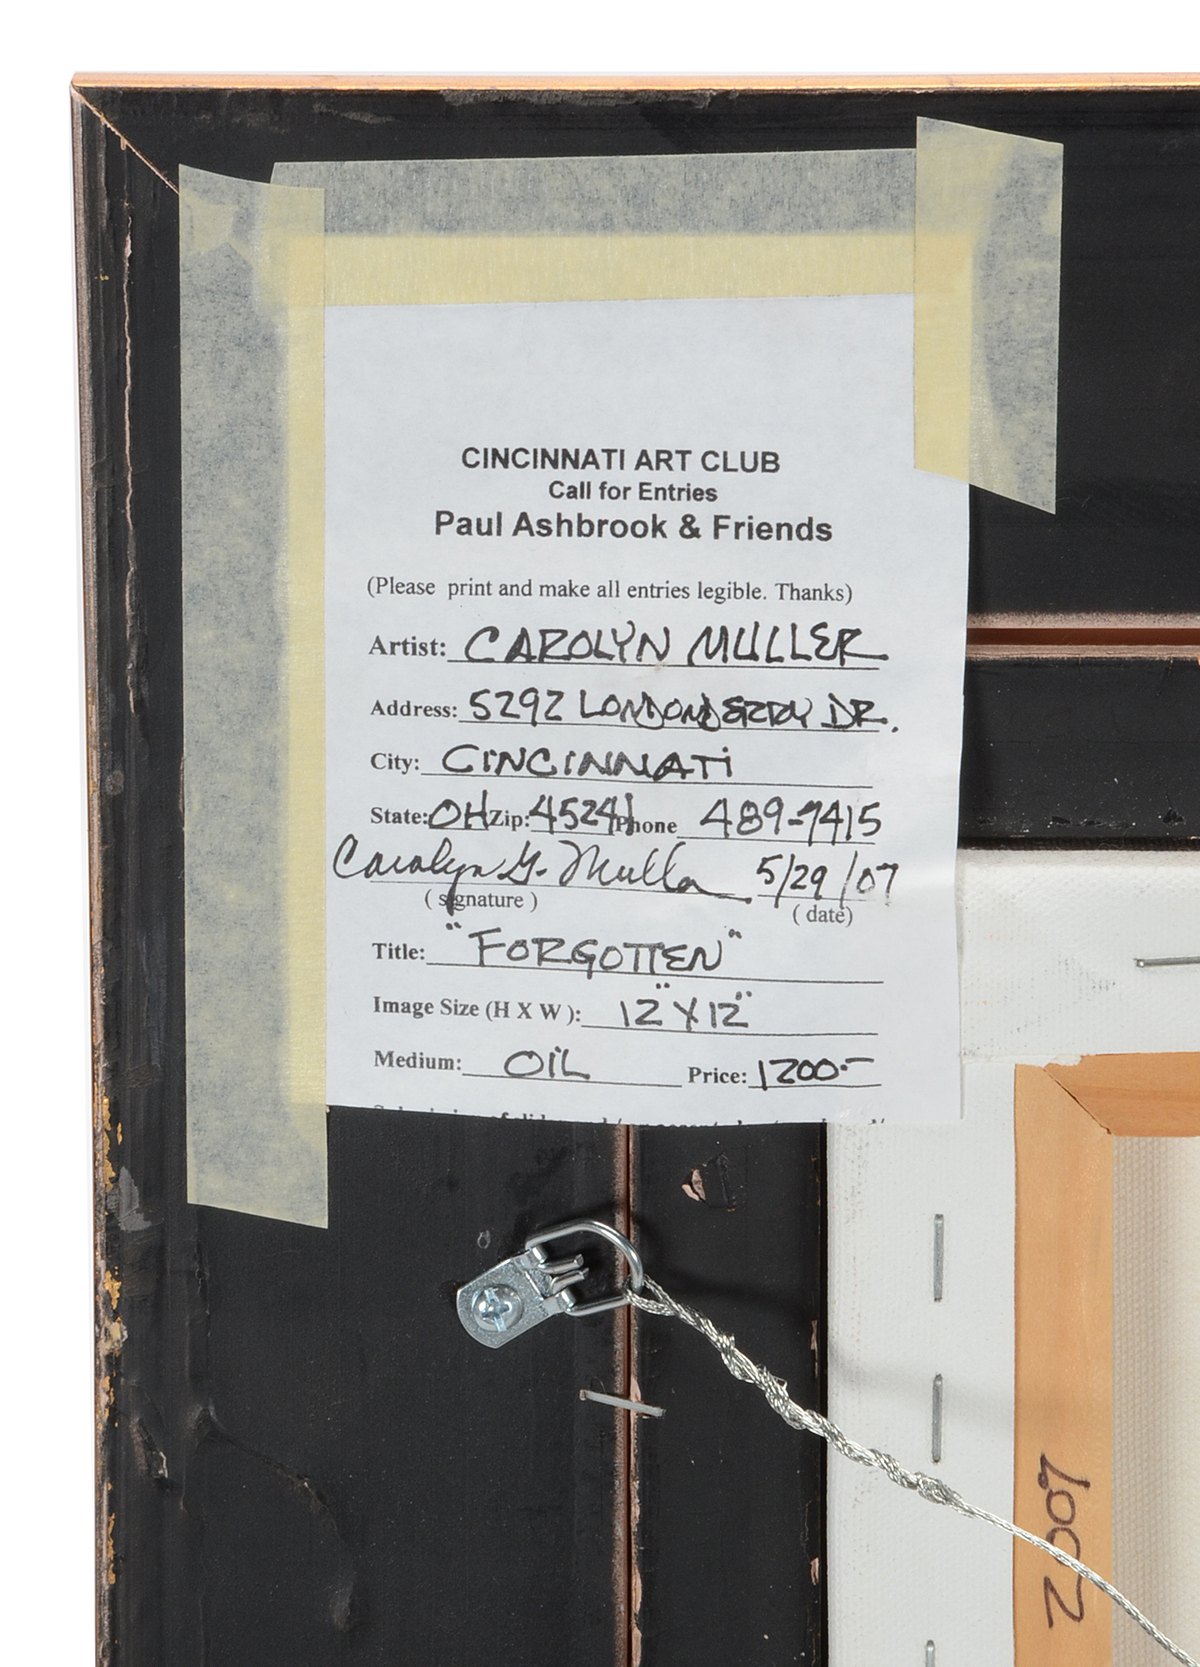 CINCINNATI ART CLUB
Call for Entries
Paul Ashbrook & Friends
(Please print and make all entries legible. Thanks)
Artist: CAROLYN MULLER
Address: 5292 LONDONDERRY DR.
City: CINCINNATI
State: OH Zip: 45241 Phone 489-7415
Carolyn G. Muller 5/29/07
(signature) (date)
Title: "FORGOTTEN"
Image Size (H X W): 12" X 12"
Medium: OIL Price: 1200.-
2007